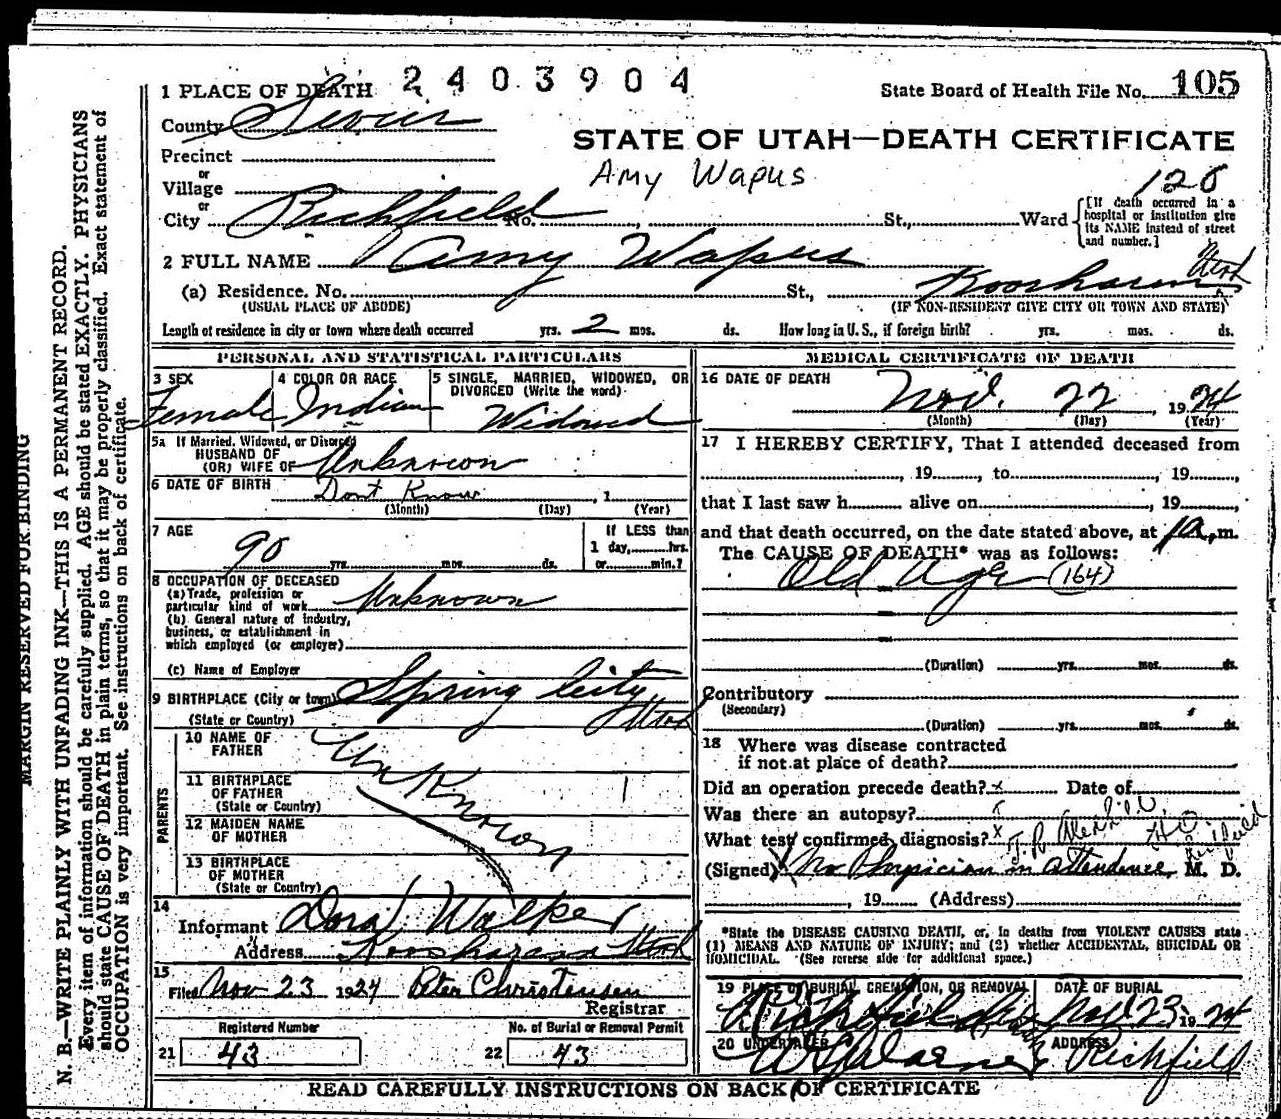 2403904
1 PLACE OF DEATH
State Board of Health File No. 105
County Sevier
STATE OF UTAH—DEATH CERTIFICATE
Precinct
Amy Wapus
or
Village
or
City Richfield No. St., Ward
[If death occurred in a hospital or institution give its NAME instead of street and number.]
2 FULL NAME Amy Wapus
(a) Residence. No. St., Koosharem Utah
(USUAL PLACE OF ABODE) (IF NON-RESIDENT GIVE CITY OR TOWN AND STATE)
Length of residence in city or town where death occurred yrs. 2 mos. ds. How long in U. S., if foreign birth? yrs. mos. ds.
PERSONAL AND STATISTICAL PARTICULARS
3 SEX Female
4 COLOR OR RACE Indian
5 SINGLE, MARRIED, WIDOWED, OR DIVORCED (Write the word) Widowed
5a If Married, Widowed, or Divorced
HUSBAND OF
(OR) WIFE OF Unknown
6 DATE OF BIRTH Dont Know , 1
(Month) (Day) (Year)
7 AGE 90 yrs. mos. ds.
If LESS than 1 day, hrs. or min.?
8 OCCUPATION OF DECEASED
(a) Trade, profession or
particular kind of work Unknown
(b) General nature of industry,
business, or establishment in
which employed (or employer)
(c) Name of Employer
9 BIRTHPLACE (City or town) Spring City
(State or Country) Utah
PARENTS
10 NAME OF FATHER
Unknown
11 BIRTHPLACE OF FATHER
(State or Country)
12 MAIDEN NAME OF MOTHER
13 BIRTHPLACE OF MOTHER
(State or Country)
14
Informant Dora Walker
Address Koosharem Utah
15
Filed Nov 23 1924 Peter Christensen
Registrar
Registered Number No. of Burial or Removal Permit
21 43 22 43
MEDICAL CERTIFICATE OF DEATH
16 DATE OF DEATH
Nov. 22, 1924
(Month) (Day) (Year)
17 I HEREBY CERTIFY, That I attended deceased from
, 19 , to , 19
that I last saw h alive on , 19
and that death occurred, on the date stated above, at 1 a. m.
The CAUSE OF DEATH* was as follows:
Old Age (164)
(Duration) yrs. mos. ds.
Contributory
(Secondary)
(Duration) yrs. mos. ds.
18 Where was disease contracted
if not at place of death?
Did an operation precede death? x Date of
Was there an autopsy? x
What test confirmed diagnosis? x
(Signed) No Physician in attendence, M. D.
, 19 (Address)
*State the DISEASE CAUSING DEATH, or, in deaths from VIOLENT CAUSES state
(1) MEANS AND NATURE OF INJURY; and (2) whether ACCIDENTAL, SUICIDAL OR
HOMICIDAL. (See reverse side for additional space.)
19 PLACE OF BURIAL, CREMATION, OR REMOVAL DATE OF BURIAL
Richfield Nov 23 1924
20 UNDERTAKER ADDRESS
Richfield
READ CAREFULLY INSTRUCTIONS ON BACK OF CERTIFICATE
MARGIN RESERVED FOR BINDING
N. B.—WRITE PLAINLY WITH UNFADING INK—THIS IS A PERMANENT RECORD.
Every item of information should be carefully supplied. AGE should be stated EXACTLY. PHYSICIANS
should state CAUSE OF DEATH in plain terms, so that it may be properly classified. Exact statement of
OCCUPATION is very important. See instructions on back of certificate.